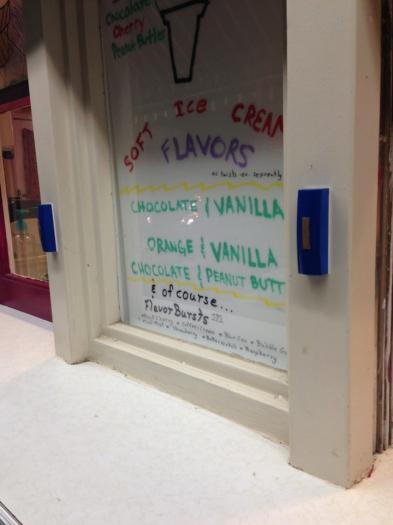 Chocolate
Cherry
Peanut Butter
SOFT Ice CREAM
FLAVORS
as twists -or- seperately
CHOCOLATE & VANILLA
ORANGE & VANILLA
CHOCOLATE & PEANUT BUTT
& of course...
Flavor Bursts
Cherry • Coffee/Cream • Blue Goo • Bubble G
Strawberry • Butterscotch • Raspberry